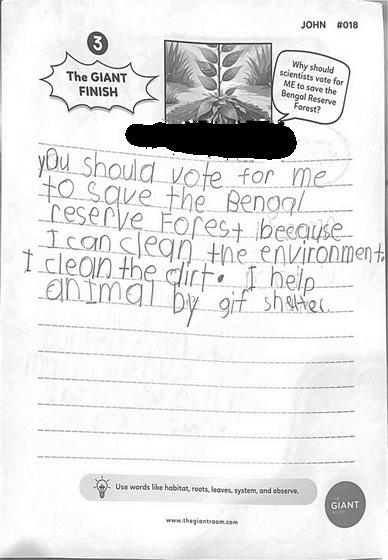 JOHN #018
3
The GIANT
FINISH
Why should
scientists vote for
ME to save the
Bengal Reserve
Forest?
you should vote for me
to save the Bengal
reserve Forest because
I can clean the environment.
I clean the dirt. I help
animal by gif shelter
Use words like habitat, roots, leaves, system, and observe.
www.thegiantroom.com
THE
GIANT
ROOM